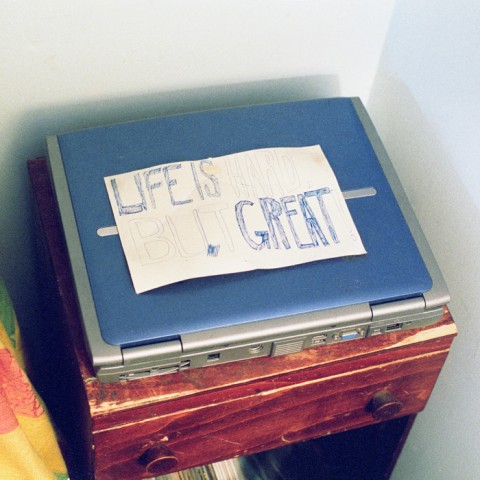 LIFE IS HARD
BUT, GREAT